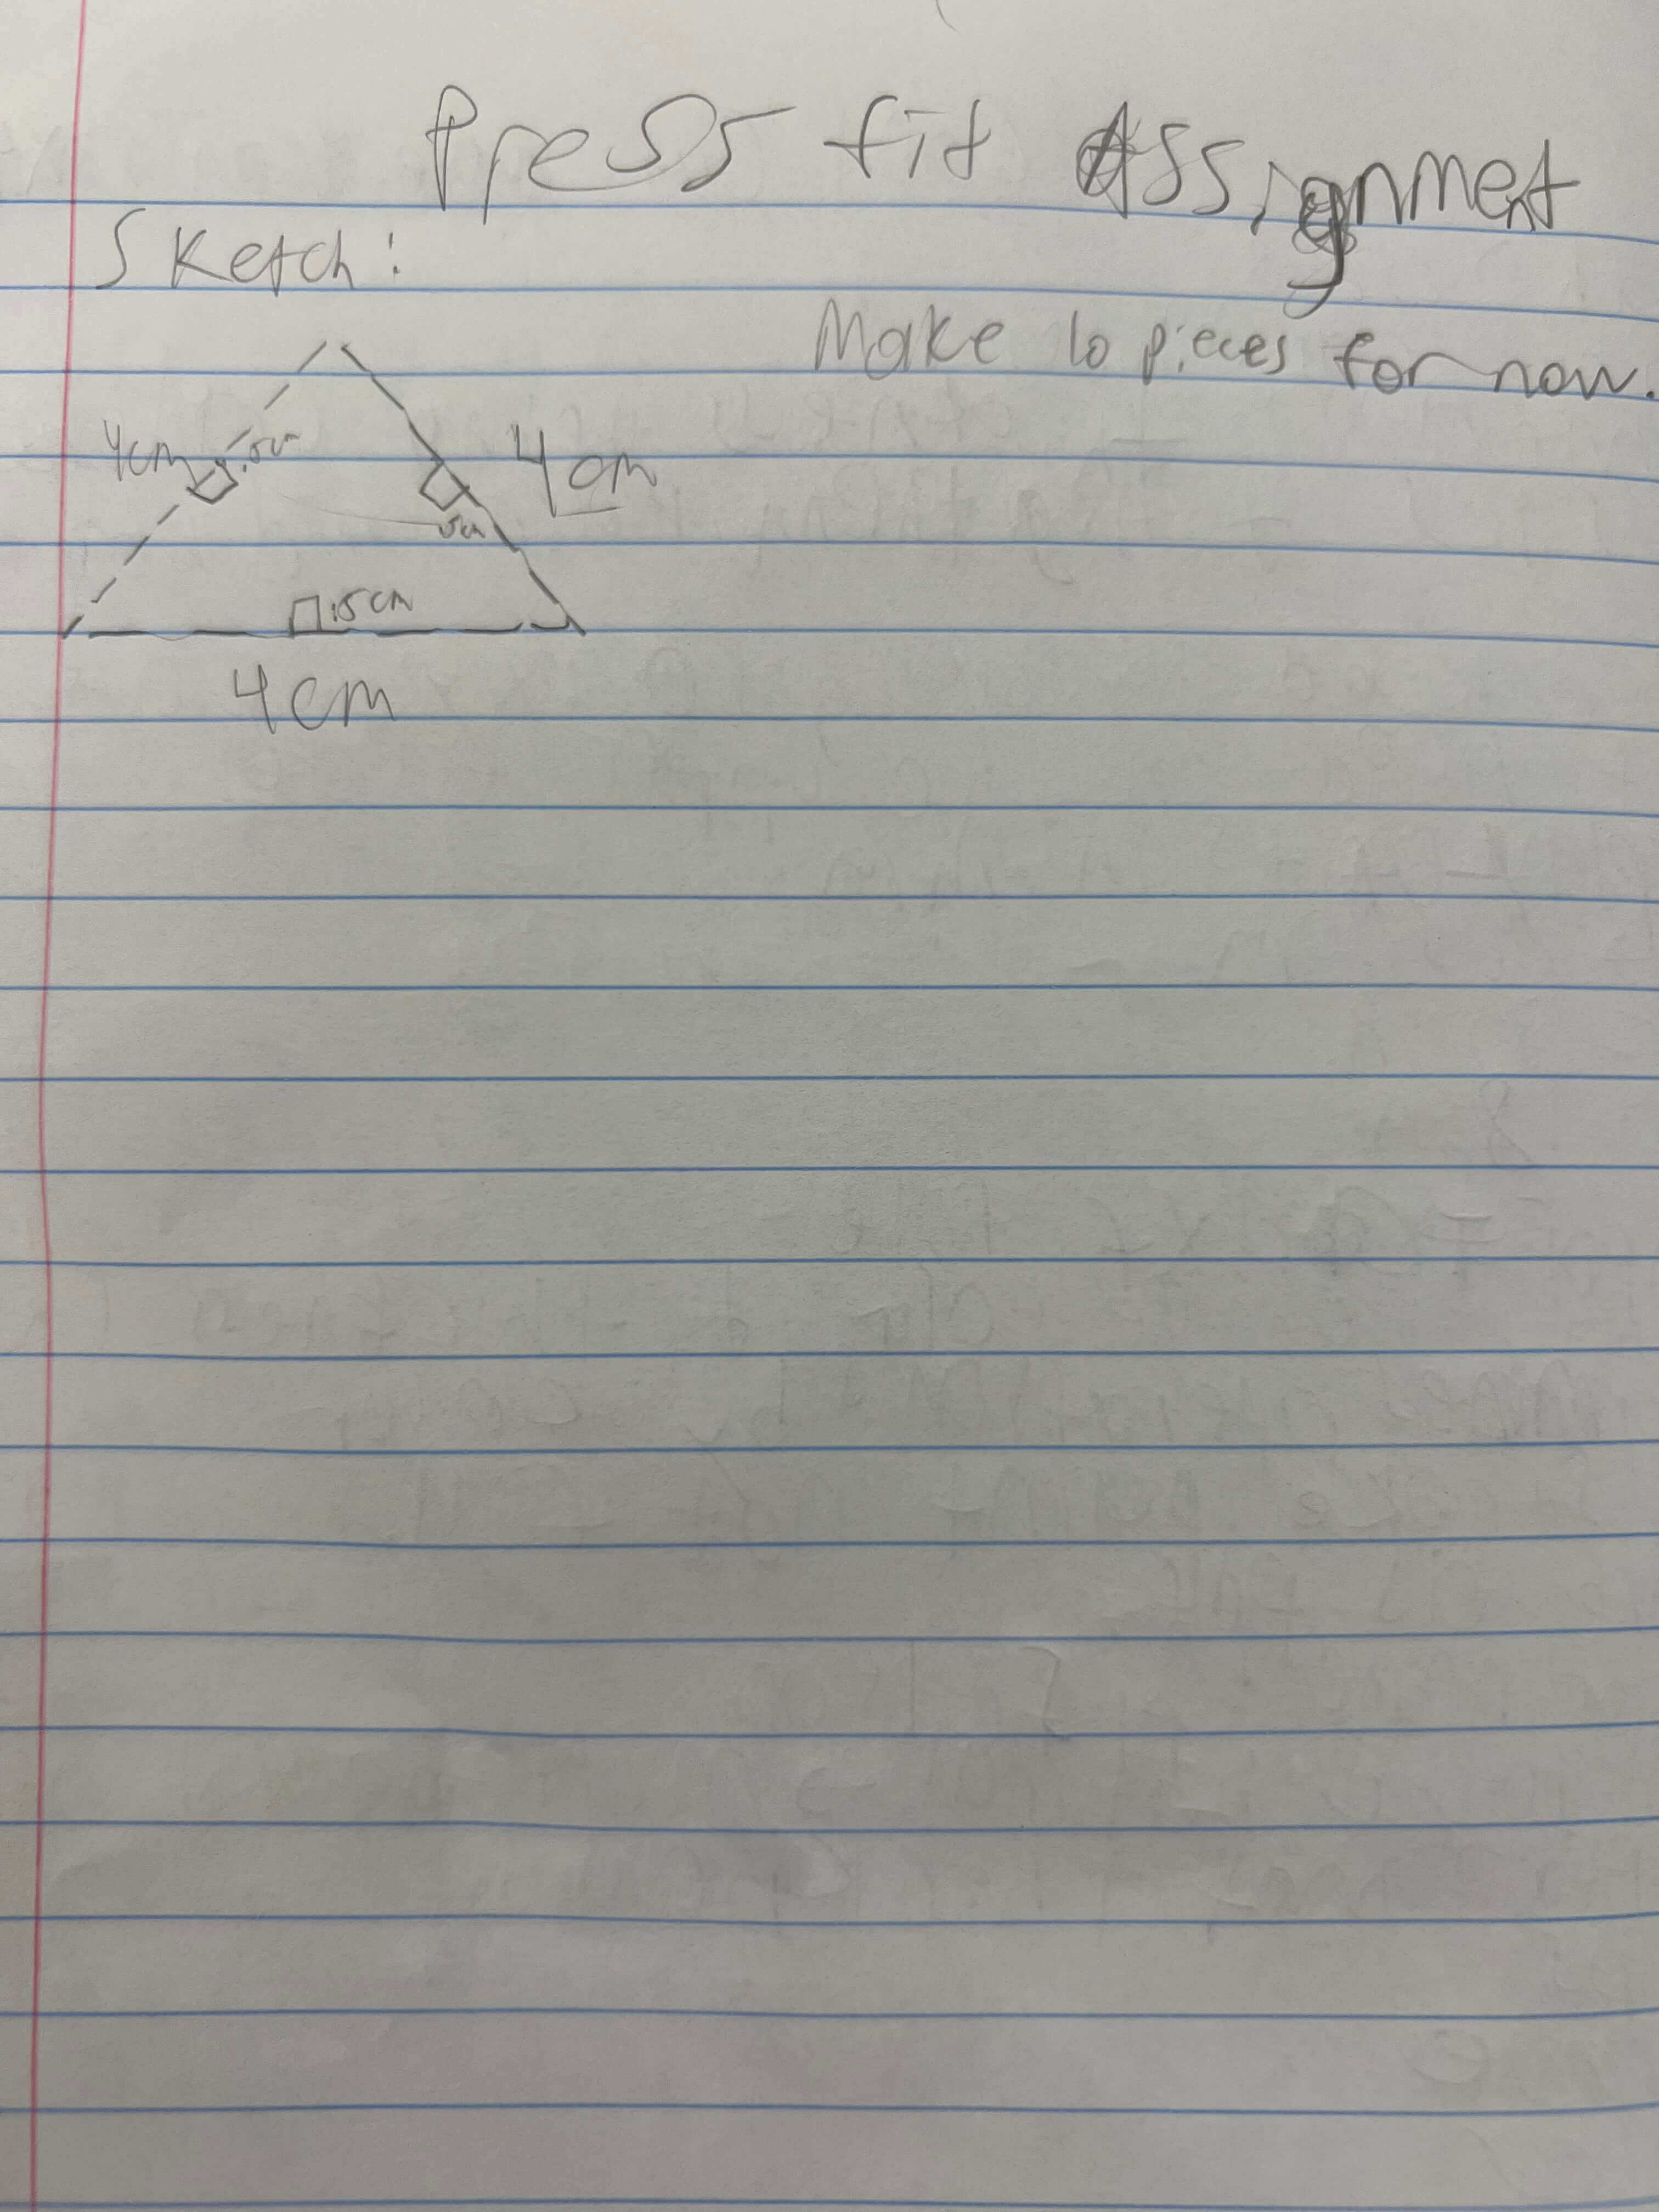 Press fit Assignment
Sketch:
Make 10 pieces for now.
4cm
.5cm
4cm
.5cm
.5cm
4cm